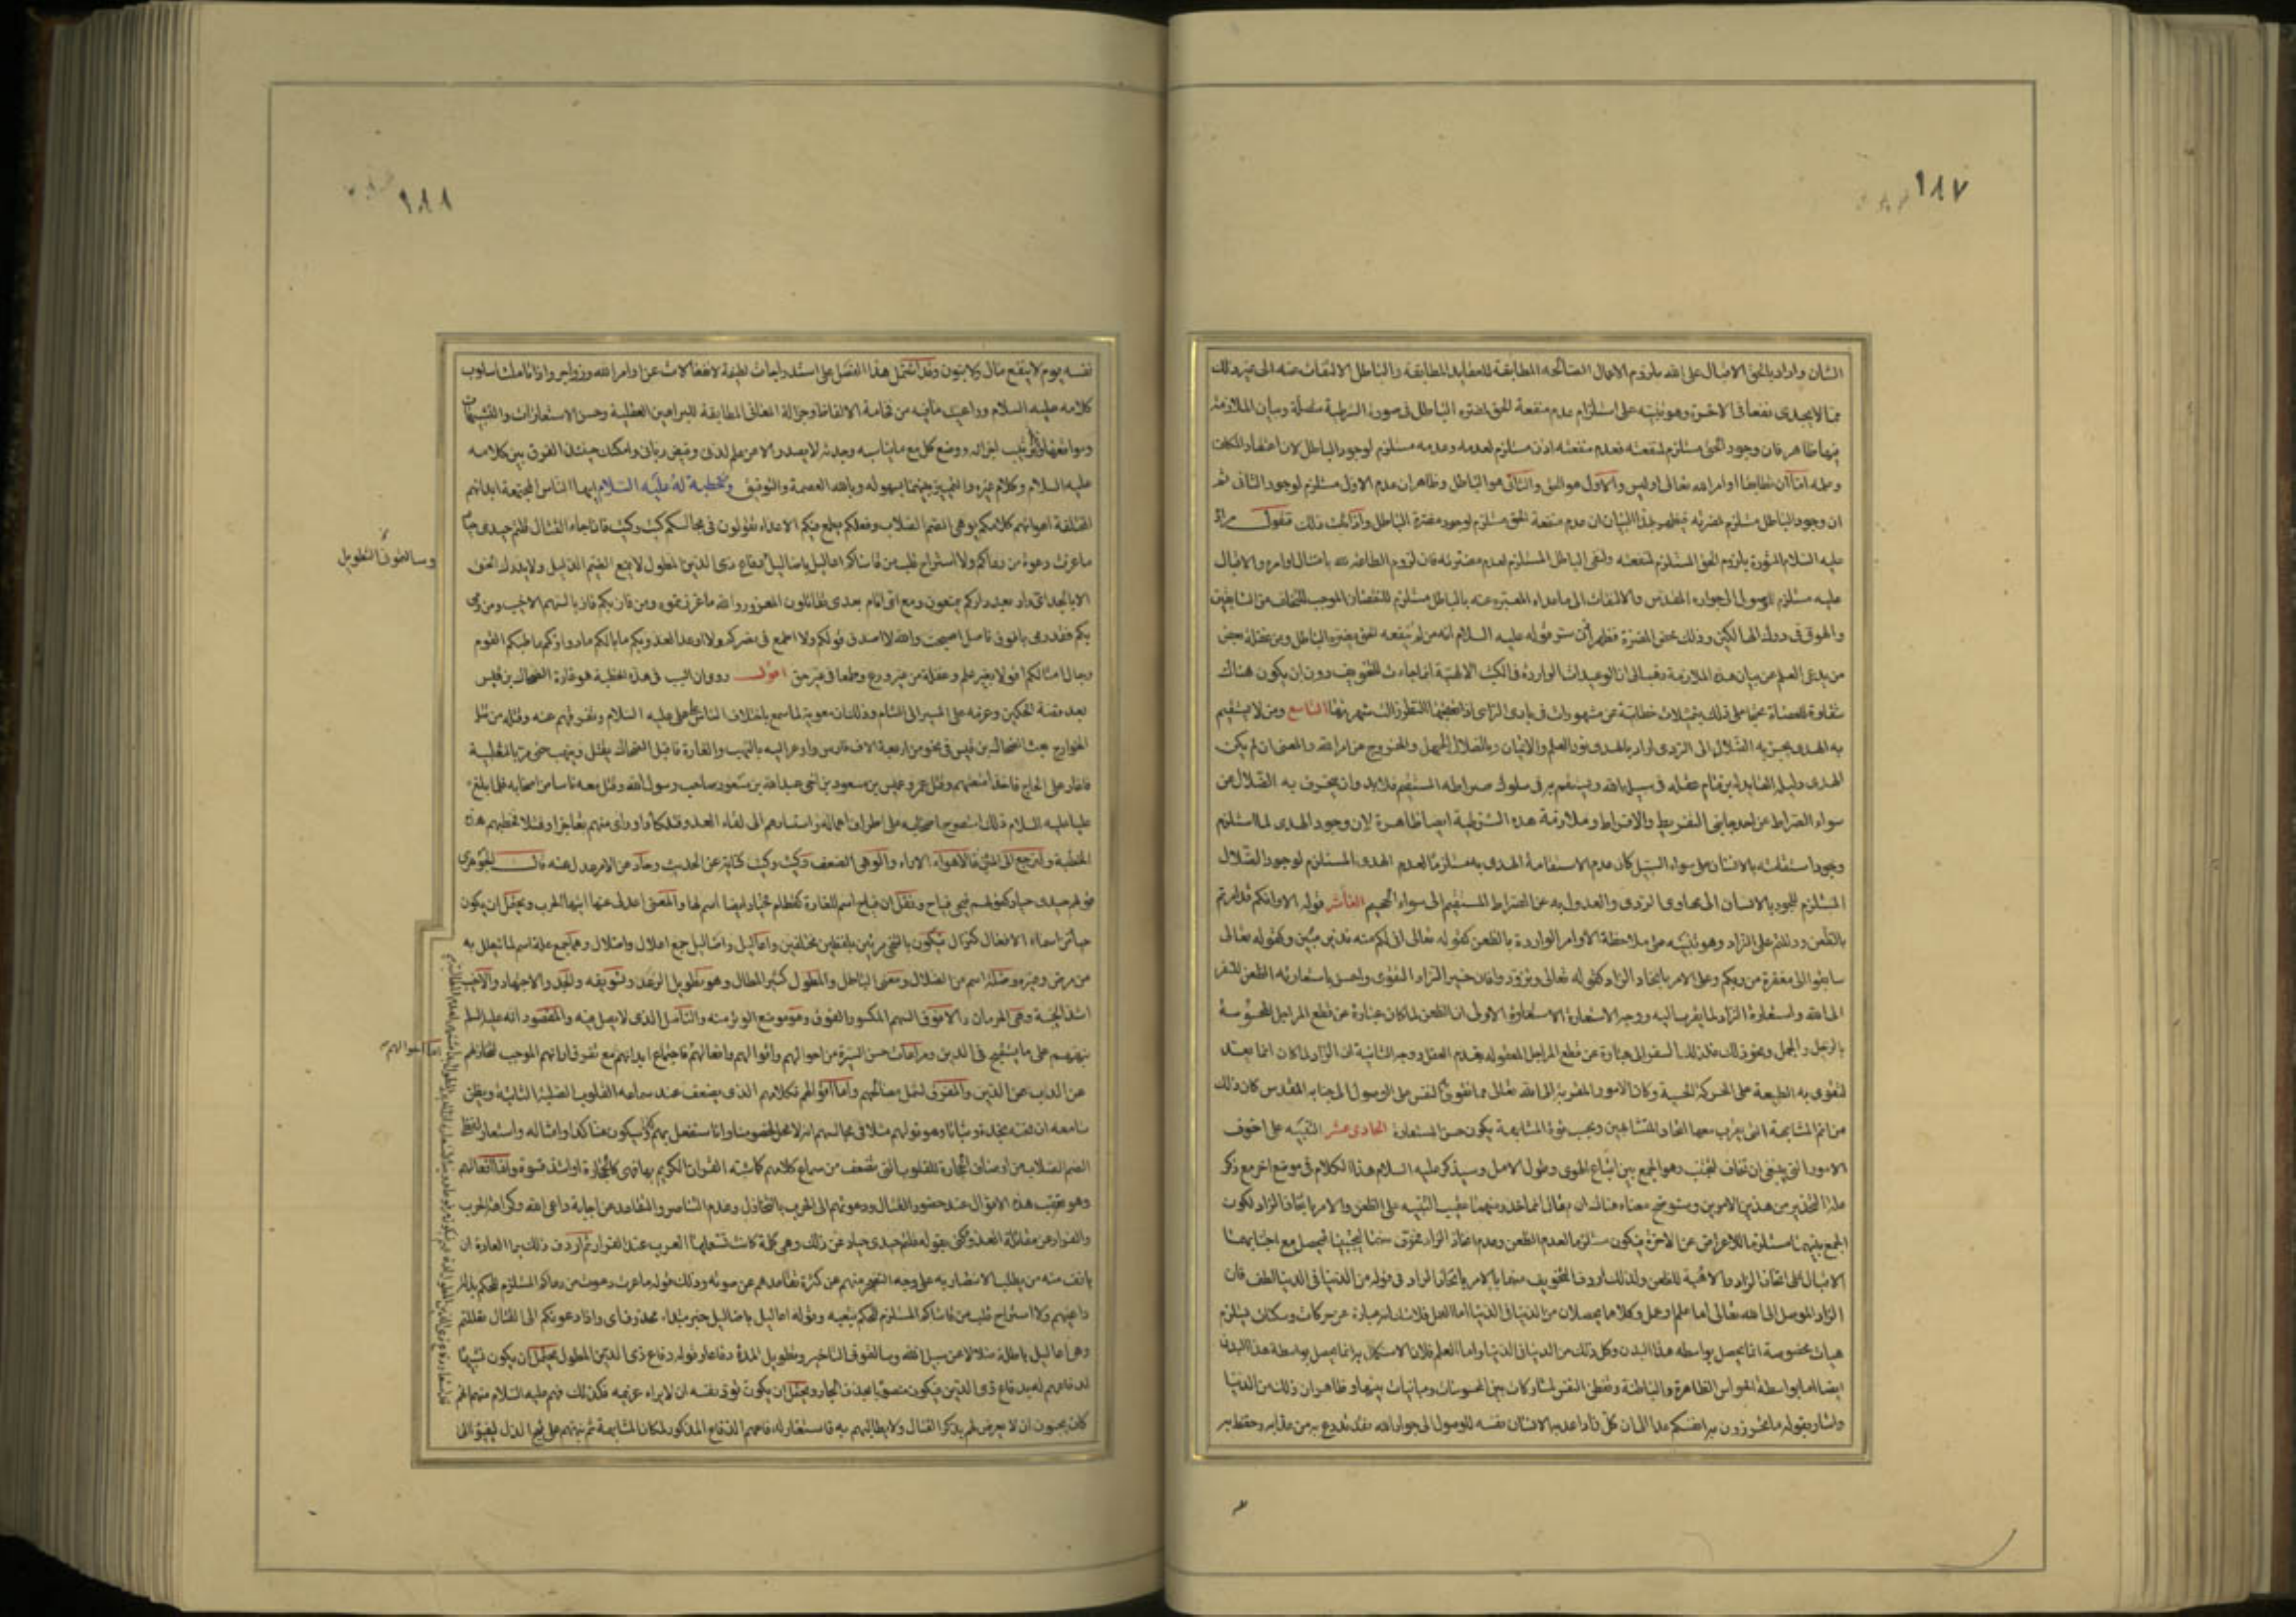 ١٨٧
الشان واراد بالحق الاقبال على الله بلزوم الاعمال الصالحة المطابقة للعقايد المطابقة والباطل الالتفات عنه الى غير ذلك
مما لا يجدى نفعا فى الاخرة وهو تنبيه على استلزام عدم منفعة الحق لمضرة الباطل فى صورة الشرطية متصلة وبيان الملازمة
فيها ظاهر فان وجود الحق مستلزم لمنفعته فعدم منفعته اذن مستلزم لعدمه وعدمه مستلزم لوجود الباطل لان اعتقاد المكلف
وعمله اما ان يطابقا اوامر الله تعالى او ليس والاول هو الحق والثانى هو الباطل وظاهر ان عدم الاول مستلزم لوجود الثانى ثم
ان وجود الباطل مستلزم لمضرته فيظهر بهذا البيان ان عدم منفعة الحق مستلزم لوجود مضرة الباطل واذا ثبت ذلك فنقول مراده
عليه السلام بلزوم الحق المستلزم لمنفعته ونفى الباطل المستلزم لعدم مضرته فان لزوم الطاعة لله بامتثال اوامره والاقبال
عليه مستلزم للوصول الى جواره المقدس والالتفات الى ما عداه المعبر عنه بالباطل مستلزم للنقصان الموجب للتخلف عن السابقين
والهوى فى درك الهالكين وذلك محض المضرة فظهر اذن سر قوله عليه السلام انه من لم ينفعه الحق يضره الباطل ومن غفلة بعض
من يدعى العلم عن بيان هذه الملازمة ذهب الى ان الوعيدات الواردة فى الكتب الالهية انما جاءت للتخويف دون ان يكون هناك
شقاوة للعصاة محتجا على ذلك بتمثيلات خطابية عن مشهورات فى بادى الراى اذا تعقبها النظر زالت شهرتها التاسع ومن لا يستقيم
به الهدى يجر به الضلال الى الردى اراد بالهدى نور العلم والايمان وبالضلال الجهل والخروج عن امر الله والمعنى ان لم يكن
الهدى دليله القايد له بزمام عقله فى سبيل الله ويستقيم به فى سلوك صراطه المستقيم فلا بد وان ينحرف به الضلال عن
سواء الصراط الى احد جانبى التفريط والافراط وملازمة هذه الشرطية ايضا ظاهرة لان وجود الهدى لما استلزم
وجود استقامته بالانسان على سواء السبيل كان عدم الاستقامة الهدى به مستلزما لعدم الهدى المستلزم لوجود الضلال
المستلزم للجور بالانسان الى مهاوى الردى والعدول به عن الصراط المستقيم الى سواء الجحيم العاشر قوله الا وانكم قد امرتم
بالظعن ودللتم على الزاد وهو تنبيه على ملاحظة الاوامر الواردة بالظعن كقوله تعالى انى لكم منه نذير مبين وكقوله تعالى
سابقوا الى مغفرة من ربكم وعلى الامر باتخاذ الزاد كقوله تعالى وتزودوا فان خير الزاد التقوى واحسن باستعارته الظعن للسفر
الى الله واستعارة الزاد لما يقرب اليه ووجه الاستعارة الاستعارة الاولى ان الظعن لما كان عبارة عن قطع المراحل المحسوسة
بالرجل والجمل ونحو ذلك فكذلك السفر الى الله عبارة عن قطع المراحل المعقولة بقدم العقل ووجه الثانية ان الزاد لما كان انما يعد
لتقوى به الطبيعة على الحركة الحسية وكان الامور المقربة الى الله تعالى مما تقوى به النفس على الوصول الى جنابه المقدس كان ذلك
من اتم المشابهة التى يقرب معها اتحاد المتشابهين وبحسب قوة المشابهة يكون حسن الاستعارة الحادى عشر التنبيه على اخوف
الامور التى ينبغى ان تخاف لتجتنب وهو الجمع بين اتباع الهوى وطول الامل وسيذكر عليه السلام هذا الكلام فى موضع اخر مع ذكر
علة التحذير من هذين الامرين وسنوضح معناه هناك ان تعالى انما اخذ منهما عقيب التنبيه على الظعن والامر باتخاذ الزاد لكون
الجمع بينهما مستلزما للاعراض عن الاخرة فيكون مستلزما لعدم الظعن وعدم اتخاذ الزاد فخوف منهما ليجتنبا فيحصل مع اجتنابهما
الاقبال على اتخاذ الزاد والاهبة للظعن ولذلك اردف التخويف منهما بالامر باتخاذ الزاد فى قوله من الدنيا فى الدنيا لطف فان
الزاد الموصل الى الله تعالى اما علم او عمل وكلاهما يحصلان من الدنيا فى الدنيا اما العمل فلا شك انه عبارة عن حركات وسكنات يستلزم
هيات مخصوصة انما يحصل بواسطة هذا البدن وكل ذلك من الدنيا فى الدنيا واما العلم فلان الاستكمال به انما يحصل بواسطة هذا البدن
ايضا اما بواسطة الحواس الظاهرة والباطنة وتفطن النفس لمشاركات بين المحسوسات ومباينات بينها وظاهر ان ذلك من الدنيا
واشار بقوله ما تحرزون به انفسكم غدا الى ان كل زاد اعد به الانسان نفسه للوصول الى جوار الله فقد تدرع به من عذابه وحفظ به
١٨٨
نفسه يوم لا ينفع مال ولا بنون وقد اشتمل هذا الفصل على استدراجات لطيفة لانفعالات عن اوامر الله وزواجره واذا تاملت اسلوب
كلامه عليه السلام وراعيت ما فيه من فخامة الالفاظ وجزالة المعانى المطابقة للبراهين العقلية وحسن الاستعارات والتشبيهات
ومواقعها وترتيب اجزائه ووضع كل مع ما يناسبه وجدته لا يصدر الا عن علم لدنى وفيض ربانى وامكنك حينئذ الفرق بين كلامه
عليه السلام وكلام غيره والتمييز بينهما بسهولة وبالله العصمة والتوفيق ومن خطبة له عليه السلام ايها الناس المجتمعة ابدانهم
المختلفة اهواؤهم كلامكم يوهى الصم الصلاب وفعلكم يطمع فيكم الاعداء تقولون فى مجالسكم كيت وكيت فاذا جاء القتال قلتم حيدى حياد
ما عزت دعوة من دعاكم ولا استراح قلب من قاساكم اعاليل باضاليل دفاع ذى الدين المطول لا يمنع الضيم الذليل ولا يدرك الحق
وسالتمونى التطويل
الا بالجد اى دار بعد داركم تمنعون ومع اى امام بعدى تقاتلون المغرور والله ما غررتموه ومن فاز بكم فاز بالسهم الاخيب ومن رمى
بكم فقد رمى بافوق ناصل اصبحت والله لا اصدق قولكم ولا اطمع فى نصركم ولا اوعد العدو بكم ما بالكم ما دواؤكم ما طبكم القوم
رجال امثالكم اقولا بغير علم وغفلة من غير ورع وطمعا فى غير حق اقول روى ان السبب فى هذه الخطبة هو غارة الضحاك بن قيس
بعد قصة الحكمين وعزمه على المسير الى الشام وذلك ان معوية لما سمع باختلاف الناس على على عليه السلام وتفرقهم عنه وقتله من قتل
الخوارج بعث الضحاك بن قيس فى نحو من اربعة الاف فارس واوعز اليه بالنهب والغارة فاقبل الضحاك يقتل وينهب حتى مر بالثعلبية
فاغار على الحاج فاخذ امتعتهم وقتل عمرو بن عميس بن مسعود بن اخى عبد الله بن مسعود صاحب رسول الله وقتل معه ناسا من اصحابه فلما بلغ
عليا عليه السلام ذلك استصرخ اصحابه على اطراف اعماله واستدعاهم الى لقاء العدو فتلكأوا وراى منهم تعاجزا وفشلا فخطبهم هذه
الخطبة ولنرجع الى المتن فالاهواء الاراء والوهى الضعف وكيت وكيت كناية عن الحديث وحاد عن الامر عدل عنه قال الجوهرى
قولهم حيدى حياد كقولهم فيحى فياح ونقل ان فياح اسم للغارة كقطام فحياد ايضا اسم لها والمعنى اعدلى عنا ايتها الحرب ويحتمل ان يكون
حياد من اسماء الافعال كنزال فيكون بالتنحى مرتين بلفظين مختلفين واعاليل واضاليل جمع اعلال واضلال وهما جمع علة اسم لما يتعلل به
من مرض وغيره وضلة اسم من الضلال ومعنى الباطل والمطول كثير المطال وهو تطويل الوعد وتسويفه والجد والاجتهاد والاخيب
اشد الخيبة وهى الحرمان والافوق السهم المكسور الفوق وهو موضع الوتر منه والناصل الذى لا نصل فيه والمقصود انه عليه السلم
نبههم على ما يستقبح فى الدين ومراعات حسن السيرة من احوالهم واقوالهم وافعالهم فاجتماع ابدانهم مع تفرق ارائهم الموجب لتخاذلهم
اما احوالهم
عن الذب عن الدين والمفرق لشمل مصالحهم واما اقوالهم فكلامهم الذى يضعف عند سماعه القلوب الصلبة الثابتة ويظن
سامعه ان تحته نجدة وثباتا وهو قولهم مثلا فى مجالسهم انه لا محل لخصومنا وانا سنفعل بهم كذا وسيكون منا كذا وامثاله واستعار لفظ
الصم الصلاب من اوصاف الحجارة للقلوب التى تضعف من سماع كلامهم كما شبه القران الكريم بها فهى كالحجارة او اشد قسوة واما افعالهم
وهو تعقيب هذه الاقوال عند حضور القتال ودعوتهم الى الحرب بالتخاذل وعدم التناصر والتقاعد عن اجابة داعى الله وكراهة الحرب
والفرار عن مقاتلة العدو وكنى بقوله قلتم حيدى حياد عن ذلك وهى كلمة كانت تستعملها العرب عند الفرار ثم اردف ذلك بما العادة ان
يانف منه من يطلب الانتصار به على وجه التضجر منهم عن كثرة تقاعدهم عن صوته وذلك قوله ما عزت دعوة من دعاكم المستلزم للحكم بذلة
داعيهم ولا استراح قلب من قاساكم المستلزم للحكم بتعبه وقوله اعاليل باضاليل خبر مبتداء محذوف اى واذا دعوتكم الى القتال تعللتم
وهى اعاليل باطلة ضلالا عن سبيل الله وسالتمونى التاخير وتطويل المدة دفاعا وقوله دفاع ذى الدين المطول يحتمل ان يكون تشبيها
لدفاعهم له بدفاع ذى الدين فيكون منصوبا بحذف الجار ويحتمل ان يكون قوى نفسه ان لا يراه غريمه فكذلك فهم عليه السلام منهم انهم
كانوا يحبون ان لا يعرض لهم بذكر القتال ولا يطالبهم به فاستعار له دفاعهم الدفاع المذكور لمكان المشابهة ثم نبههم على قبح الذل ليفيئوا الى